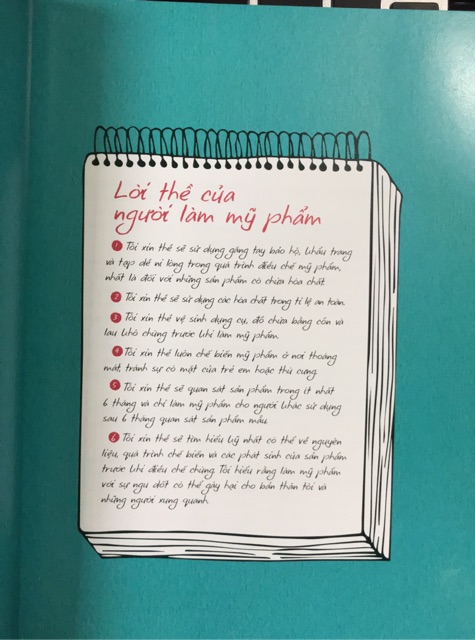 Lời thề của
người làm mỹ phẩm
1 Tôi xin thề sẽ sử dụng găng tay bảo hộ, khẩu trang
và tạp dề ni lông trong quá trình điều chế mỹ phẩm,
nhất là đối với những sản phẩm có chứa hóa chất.
2 Tôi xin thề sẽ sử dụng các hóa chất trong tỉ lệ an toàn.
3 Tôi xin thề vệ sinh dụng cụ, đồ chứa bằng cồn và
lau khô chúng trước khi làm mỹ phẩm.
4 Tôi xin thề luôn chế biến mỹ phẩm ở nơi thoáng
mát, tránh sự có mặt của trẻ em hoặc thú cưng.
5 Tôi xin thề sẽ quan sát sản phẩm trong ít nhất
6 tháng và chỉ làm mỹ phẩm cho người khác sử dụng
sau 6 tháng quan sát sản phẩm mẫu.
6 Tôi xin thề sẽ tìm hiểu kỹ nhất có thể về nguyên
liệu, quá trình chế biến và các phát sinh của sản phẩm
trước khi điều chế chúng. Tôi hiểu rằng làm mỹ phẩm
với sự ngu dốt có thể gây hại cho bản thân tôi và
những người xung quanh.